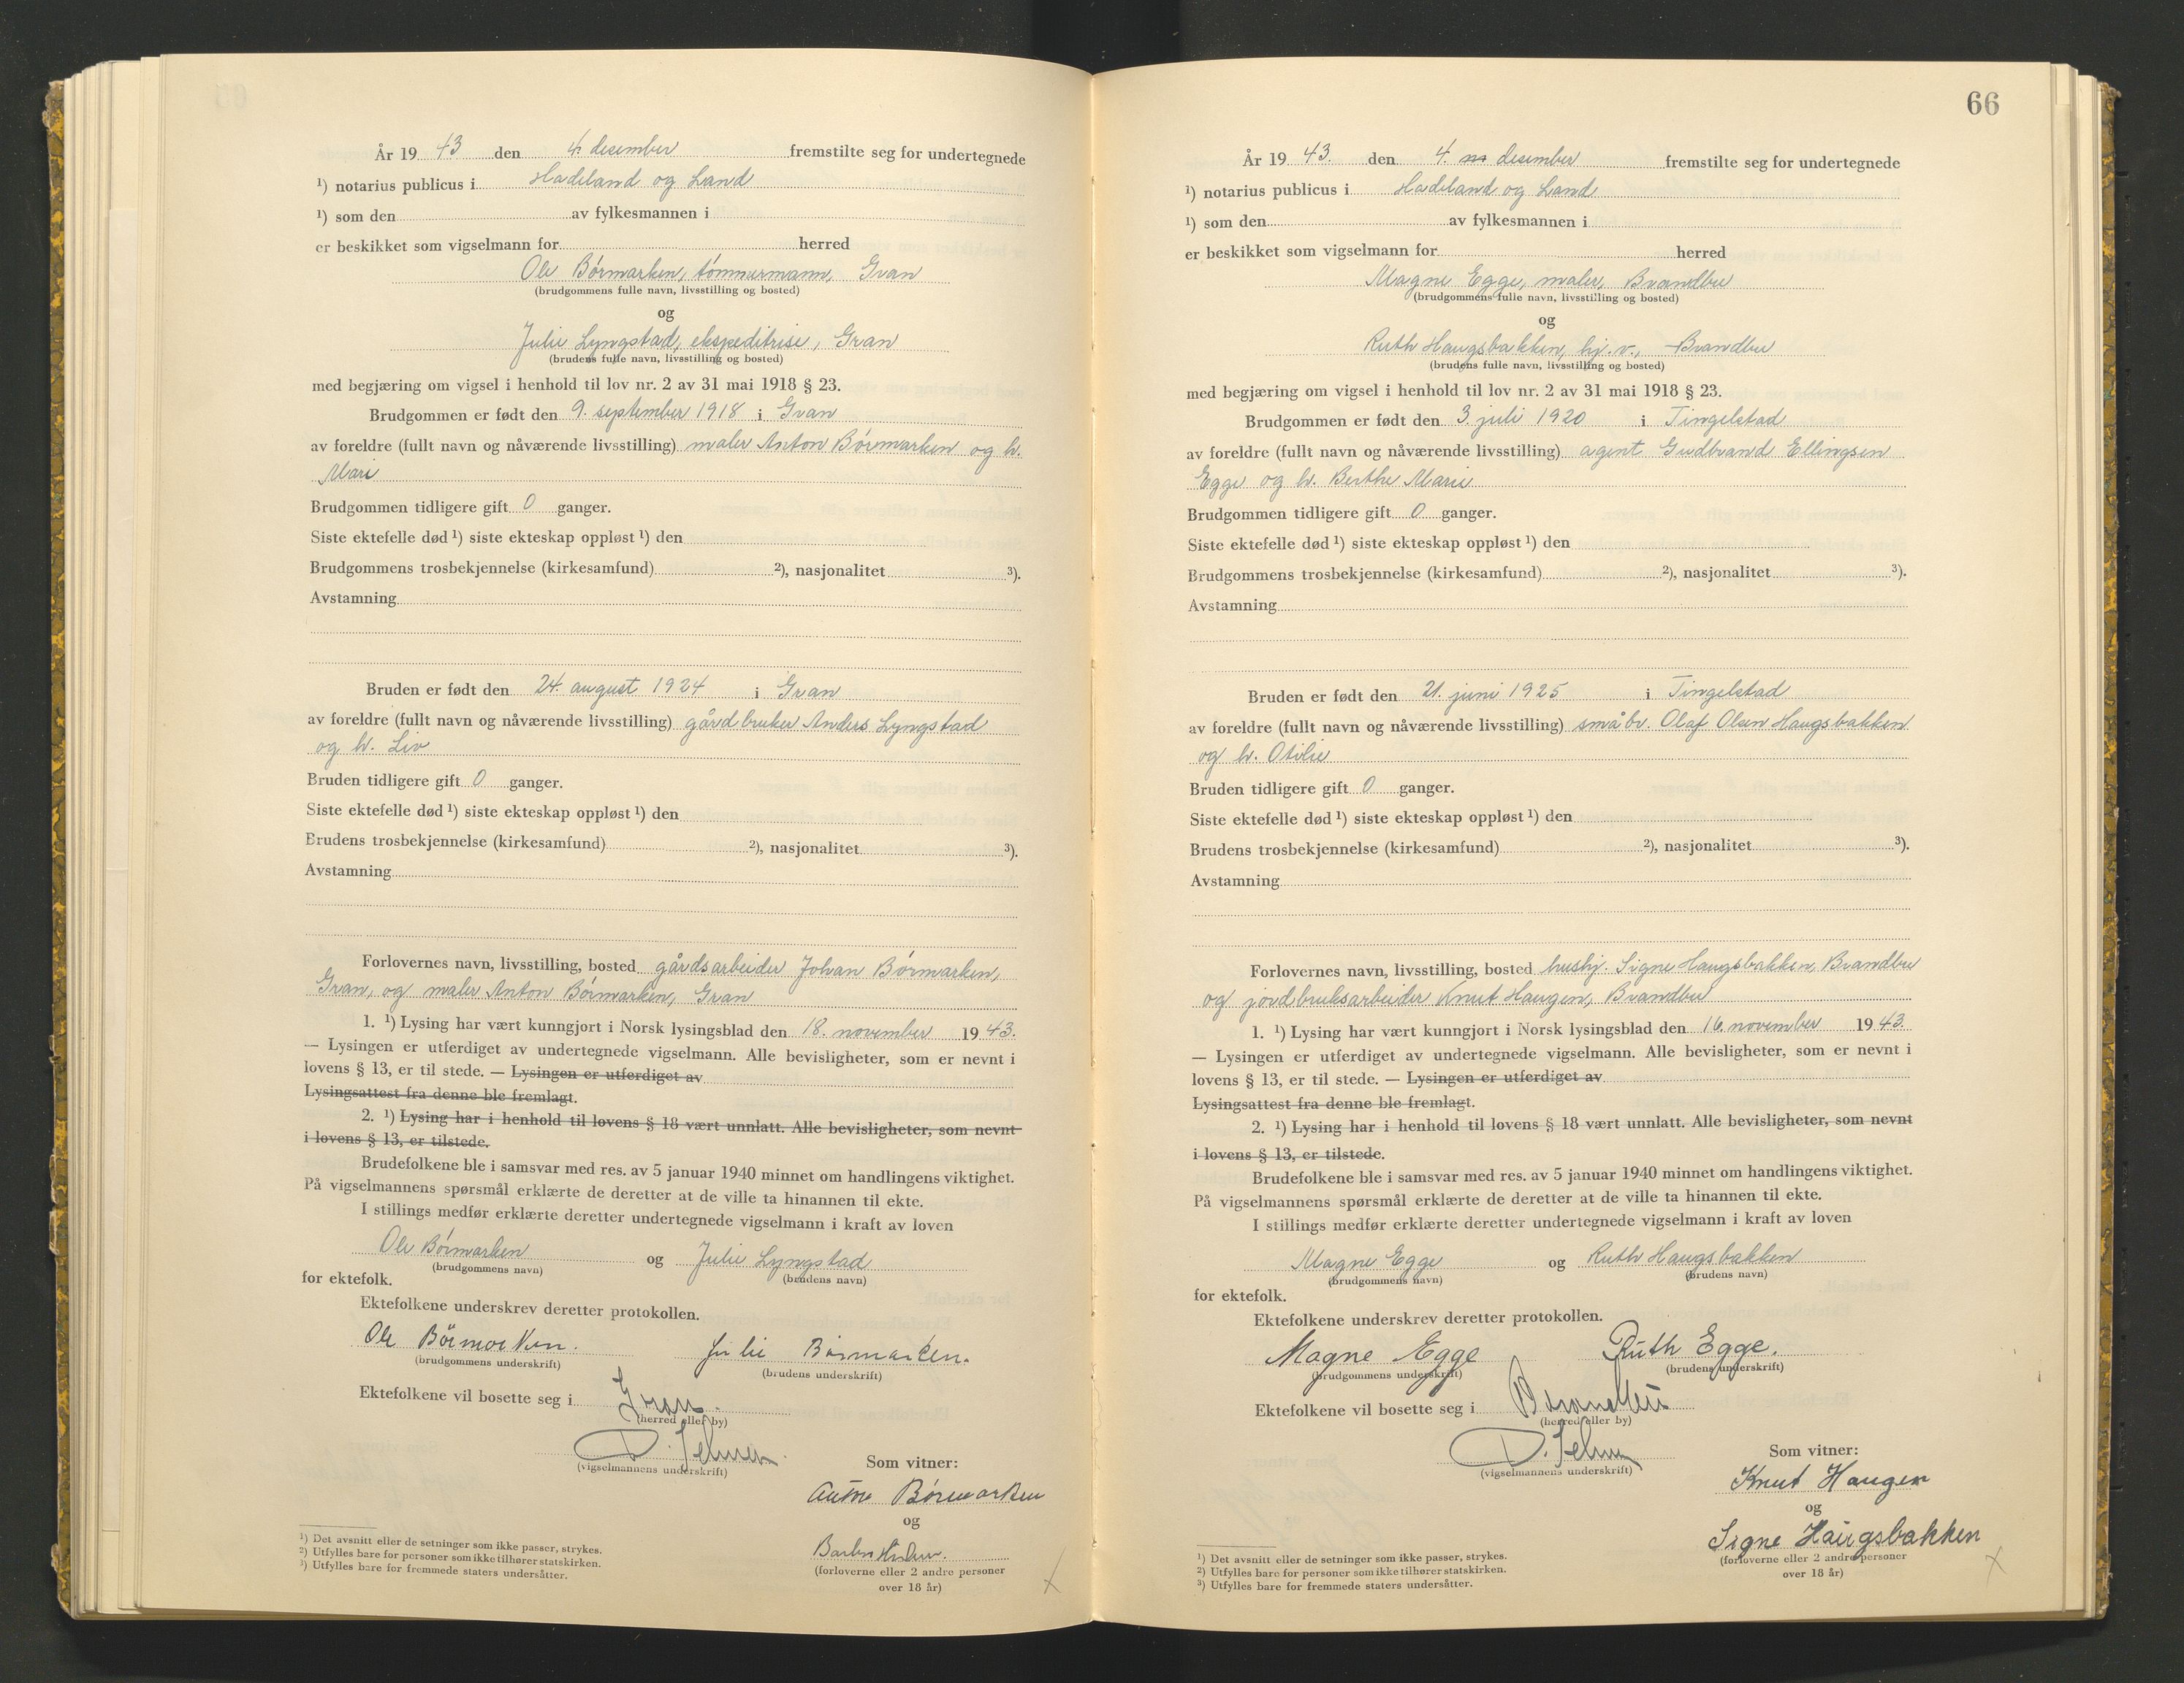 År 1943 den 4. desember fremstilte seg for undertegnede
¹) notarius publicus i Hadeland og Land
¹) som den av fylkesmannen i
er beskikket som vigselmann for herred
Ole Børmarken, tømmermann, Gran
(brudgommens fulle navn, livsstilling og bosted)
og
Julie Lyngstad, ekspeditrise, Gran
(brudens fulle navn, livsstilling og bosted)
med begjæring om vigsel i henhold til lov nr. 2 av 31 mai 1918 § 23.
Brudgommen er født den 9. september 1918 i Gran
av foreldre (fullt navn og nåværende livsstilling) maler Anton Børmarken og h.
Mari
Brudgommen tidligere gift 0 ganger.
Siste ektefelle død ¹) siste ekteskap oppløst ¹) den
Brudgommens trosbekjennelse (kirkesamfund) ²), nasjonalitet ³).
Avstamning
Bruden er født den 24. august 1924 i Gran
av foreldre (fullt navn og nåværende livsstilling) gårdbruker Anders Lyngstad
og h. Liv
Bruden tidligere gift 0 ganger.
Siste ektefelle død ¹) siste ekteskap oppløst ¹) den
Brudens trosbekjennelse (kirkesamfund) ²), nasjonalitet ³).
Avstamning
Forlovernes navn, livsstilling, bosted gårdsarbeider Johan Børmarken,
Gran, og maler Anton Børmarken, Gran
1. ¹) Lysing har vært kunngjort i Norsk lysingsblad den 18. november 1943.
— Lysingen er utferdiget av undertegnede vigselmann. Alle bevisligheter, som er nevnt i
lovens § 13, er til stede. — Lysingen er utferdiget av
Lysingsattest fra denne ble fremlagt.
2. ¹) Lysing har i henhold til lovens § 18 vært unnlatt. Alle bevisligheter, som nevnt
i lovens § 13, er tilstede.
Brudefolkene ble i samsvar med res. av 5 januar 1940 minnet om handlingens viktighet.
På vigselmannens spørsmål erklærte de deretter at de ville ta hinannen til ekte.
I stillings medfør erklærte deretter undertegnede vigselmann i kraft av loven
Ole Børmarken og Julie Lyngstad
(brudgommens navn) (brudens navn)
for ektefolk.
Ektefolkene underskrev deretter protokollen.
Ole Børmarken. Julie Børmarken.
(brudgommens underskrift) (brudens underskrift)
Ektefolkene vil bosette seg i Gran.
(herred eller by)
D. Selmer
(vigselmannens underskrift)
Som vitner:
Børmarken
og
(forloverne eller 2 andre personer
over 18 år)
¹) Det avsnitt eller de setninger som ikke passer, strykes.
²) Utfylles bare for personer som ikke tilhører statskirken.
³) Utfylles bare for fremmede staters undersåtter.
66
År 1943. den 4. desember fremstilte seg for undertegnede
¹) notarius publicus i Hadeland og Land
¹) som den av fylkesmannen i
er beskikket som vigselmann for herred
Magne Egge, maler, Brandbu
(brudgommens fulle navn, livsstilling og bosted)
og
Ruth Haugsbakken, hj.v., Brandbu
(brudens fulle navn, livsstilling og bosted)
med begjæring om vigsel i henhold til lov nr. 2 av 31 mai 1918 § 23.
Brudgommen er født den 3. juli 1920 i Tingelstad
av foreldre (fullt navn og nåværende livsstilling) agent Gudbrand Ellingsen
Egge og h. Berthe Marie
Brudgommen tidligere gift 0 ganger.
Siste ektefelle død ¹) siste ekteskap oppløst ¹) den
Brudgommens trosbekjennelse (kirkesamfund) ²), nasjonalitet ³).
Avstamning
Bruden er født den 21. juni 1925 i Tingelstad
av foreldre (fullt navn og nåværende livsstilling) småbr. Olaf Olsen Haugsbakken
og h. Otilie
Bruden tidligere gift 0 ganger.
Siste ektefelle død ¹) siste ekteskap oppløst ¹) den
Brudens trosbekjennelse (kirkesamfund) ²), nasjonalitet ³).
Avstamning
Forlovernes navn, livsstilling, bosted hushj. Signe Haugsbakken, Brandbu
og jordbruksarbeider Knut Haugen, Brandbu
1. ¹) Lysing har vært kunngjort i Norsk lysingsblad den 16. november 1943.
— Lysingen er utferdiget av undertegnede vigselmann. Alle bevisligheter, som er nevnt i
lovens § 13, er til stede. — Lysingen er utferdiget av
Lysingsattest fra denne ble fremlagt.
2. ¹) Lysing har i henhold til lovens § 18 vært unnlatt. Alle bevisligheter, som nevnt
i lovens § 13, er tilstede.
Brudefolkene ble i samsvar med res. av 5 januar 1940 minnet om handlingens viktighet.
På vigselmannens spørsmål erklærte de deretter at de ville ta hinannen til ekte.
I stillings medfør erklærte deretter undertegnede vigselmann i kraft av loven
Magne Egge og Ruth Haugsbakken
(brudgommens navn) (brudens navn)
for ektefolk.
Ektefolkene underskrev deretter protokollen.
Magne Egge Ruth Egge.
(brudgommens underskrift) (brudens underskrift)
Ektefolkene vil bosette seg i Brandbu
(herred eller by)
D. Selmer
(vigselmannens underskrift)
Som vitner:
Knut Haugen
og
Signe Haugsbakken
(forloverne eller 2 andre personer
over 18 år)
¹) Det avsnitt eller de setninger som ikke passer, strykes.
²) Utfylles bare for personer som ikke tilhører statskirken.
³) Utfylles bare for fremmede staters undersåtter.